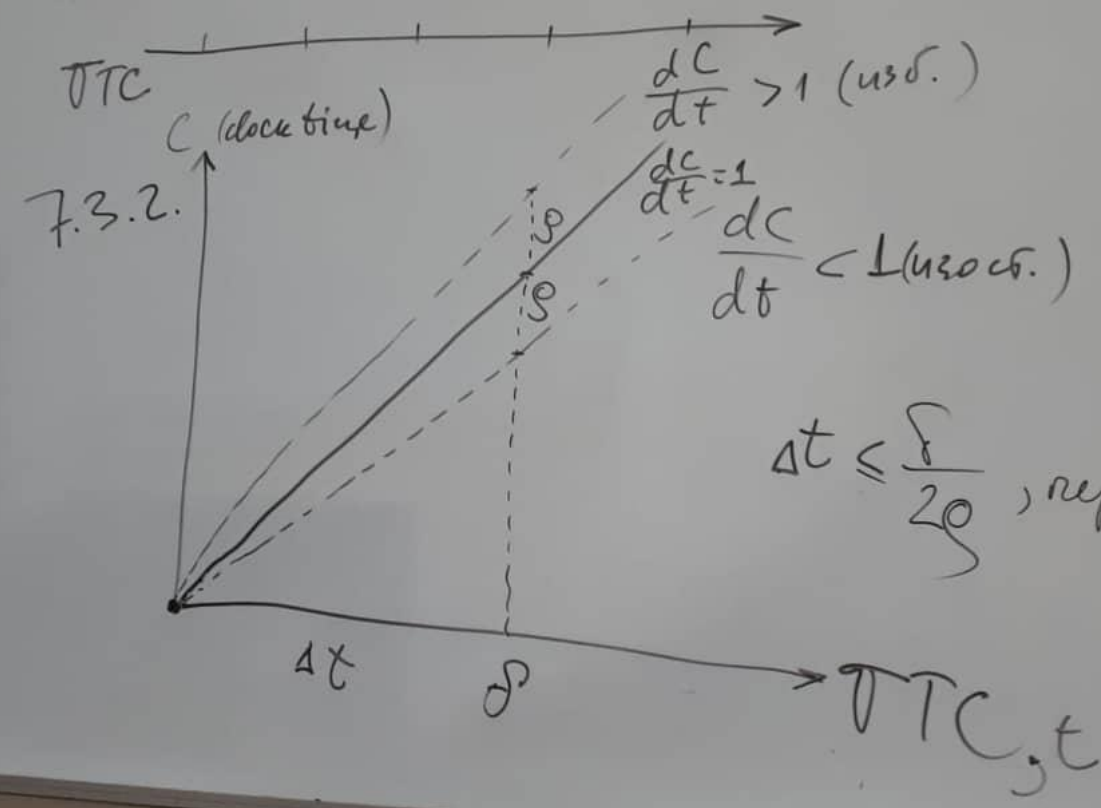 UTC
C (clock time)
7.3.2.
dC/dt > 1 (изб.)
ρ
dC/dt = 1
ρ
dC/dt < 1 (изост.)
Δt ≤ δ/2ρ , пер
Δt
δ
UTC, t